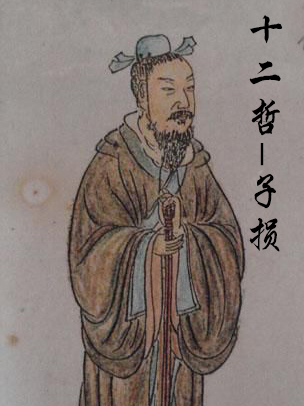 十二哲–子损